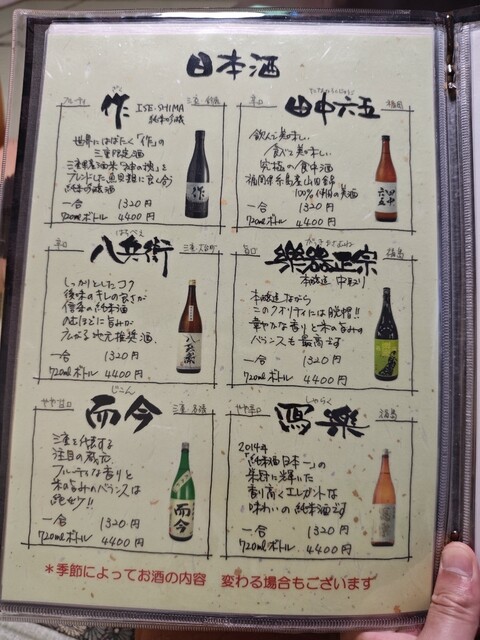 日本酒
フルーティ
ざく
作
ISE-SHIMA
純米吟醸
三重・鈴鹿
世界にはばたく「作」の
三重限定酒
三重県産酒米「神の穂」を
ブレンドした魚貝類に良く合う
純米吟醸酒
一合 1320円
720mlボトル 4400円
辛口
田中六五
福岡
飲んで美味しい
食べて美味しい
究極の食中酒
福岡県糸島産山田錦
100%使用の美酒
一合 1320円
720mlボトル 4400円
辛口
はちべえ
八兵衛
三重・大台町
しっかりとしたコク
後味のキレの良さが
信条の純米酒
のむほどに旨みが
広がる地元推奨酒
一合 1320円
720mlボトル 4400円
旨口
がっきまさむね
樂器正宗
本醸造 中取り
福島
本醸造ながら
このクオリティには脱帽!!
華やかな香りと米の旨みの
バランスも最高です
一合 1320円
720mlボトル 4400円
やや甘口
じこん
而今
三重・名張
三重を代表する
注目の蔵元
フルーティな香りと
米の旨みのバランスは
絶妙!!
一合 1320円
720mlボトル 4400円
やや辛口
しゃらく
寫樂
福島
2014年
「純米酒日本一」の
栄冠に輝いた
香り高くエレガントな
味わいの純米酒です
一合 1320円
720mlボトル 4400円
*季節によってお酒の内容 変わる場合もございます